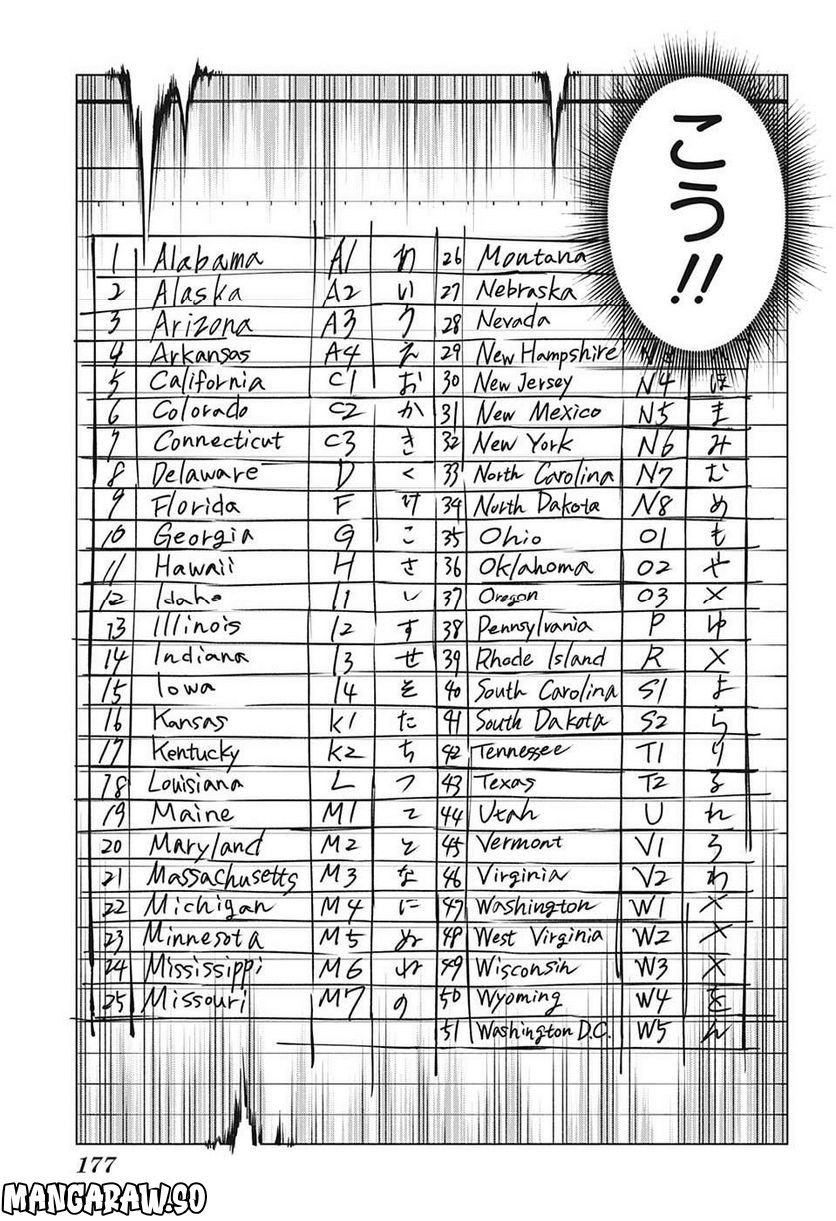 こう!!
1 Alabama A1 わ 26 Montana
2 Alaska A2 い 27 Nebraska
3 Arizona A3 う 28 Nevada
4 Arkansas A4 え 29 New Hampshire
5 California C1 お 30 New Jersey N4 ほ
6 Colorado C2 か 31 New Mexico N5 ま
7 Connecticut C3 き 32 New York N6 み
8 Delaware D く 33 North Carolina N7 む
9 Florida F け 34 North Dakota N8 め
10 Georgia G こ 35 Ohio O1 も
11 Hawaii H さ 36 Oklahoma O2 や
12 Idaho I1 し 37 Oregon O3 ×
13 Illinois I2 す 38 Pennsylvania P ゆ
14 Indiana I3 せ 39 Rhode Island R ×
15 Iowa I4 そ 40 South Carolina S1 よ
16 Kansas K1 た 41 South Dakota S2 ら
17 Kentucky K2 ち 42 Tennessee T1 り
18 Louisiana L つ 43 Texas T2 る
19 Maine M1 て 44 Utah U れ
20 Maryland M2 と 45 Vermont V1 ろ
21 Massachusetts M3 な 46 Virginia V2 わ
22 Michigan M4 に 47 Washington W1 ×
23 Minnesota M5 ぬ 48 West Virginia W2 ×
24 Mississippi M6 ね 49 Wisconsin W3 ×
25 Missouri M7 の 50 Wyoming W4 を
51 Washington D.C. W5 ん
177
MANGARAW.SO